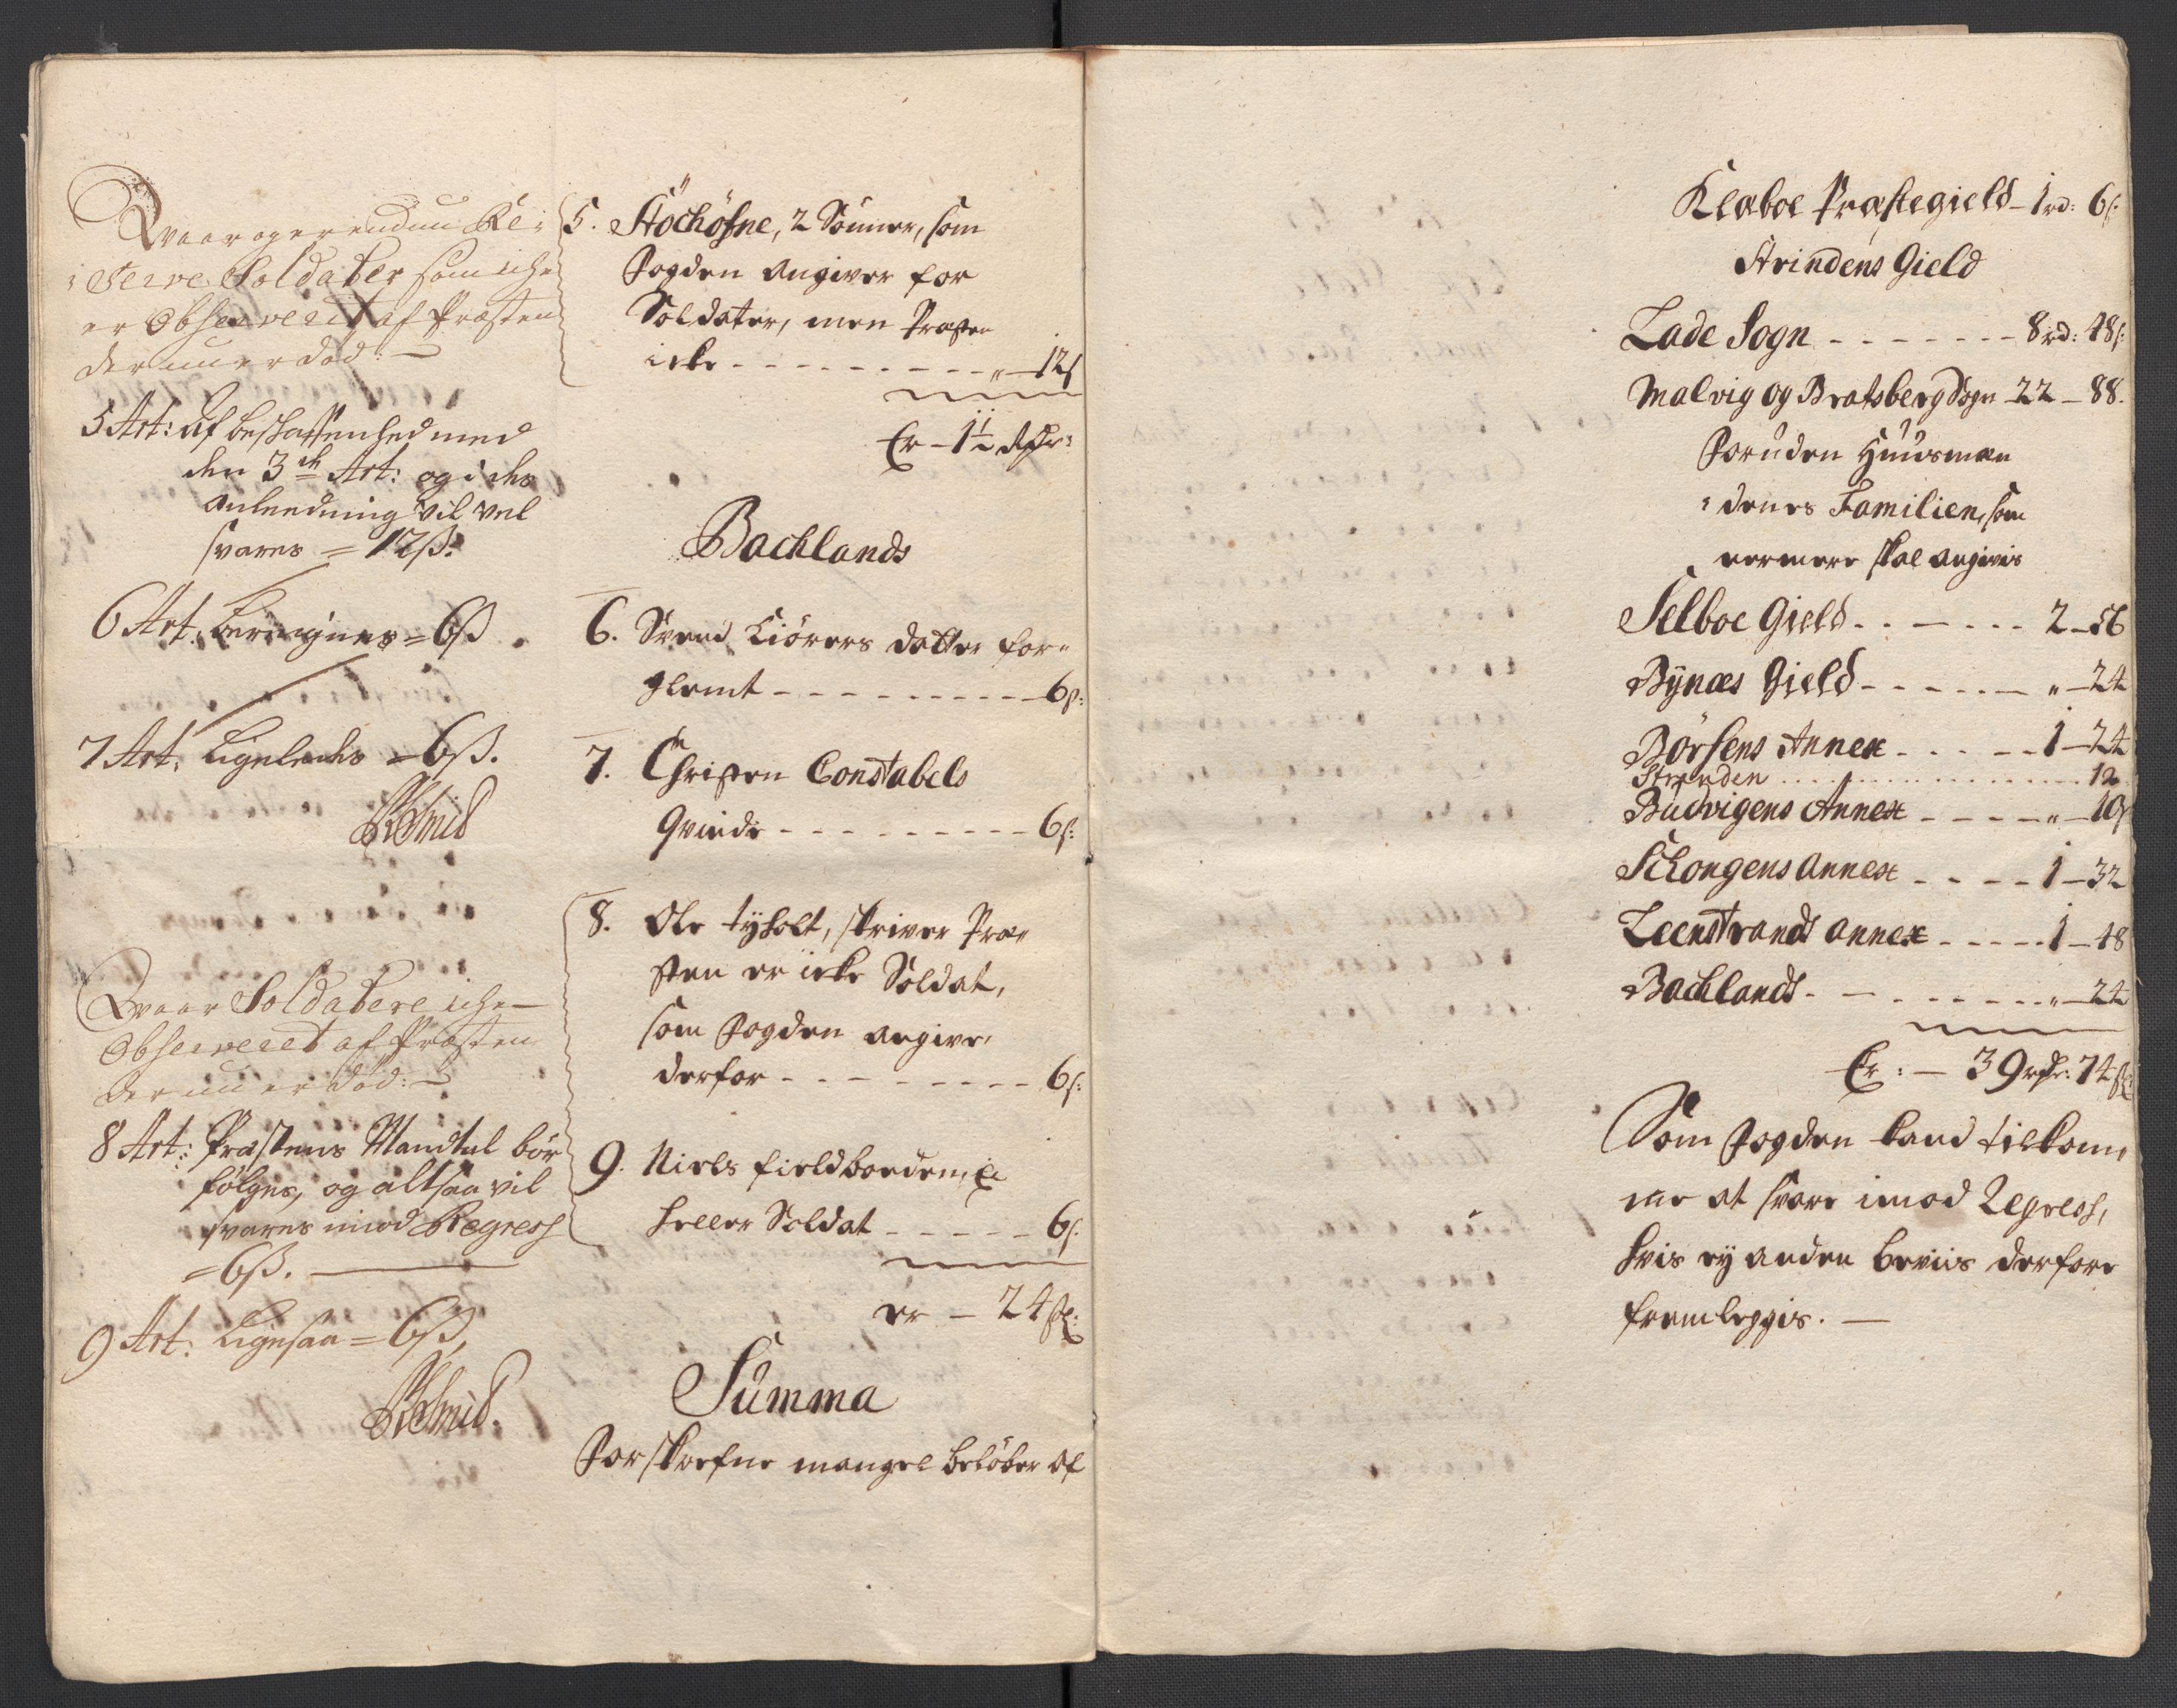 Waar og er endnu Re=
=serve Soldater som iche
er Observerit af Præsten
der nu er død: —
5 Art: af beskaffenhed med
den 3de Art: og i dets
anleedning vil vel
svares = 12ß.
6 Art. = 6ß
7 Art. Ligeledes = 6ß.
RSmid
Waar Soldatere iche
Observeret af Præsten
der nu er død: —
8 Art: Præstens Mandtal bør
følges, og altsaa vil
svares imod Regress
= 6ß.
9 Art: Ligesaa = 6ß,
RSmid.
5. Stöchöfne, 2 Sönner, som
Fogden angiver for
Soldater, men Præsten
icke - - - - - - - - - " — 12ß
Er — 1½ dhr:
Bachlands
6. Svend Kiörers datter for=
glemt - - - - - - - - - 6ß:
7. Christen Constabels
Qvinde - - - - - - - - - 6ß:
8. Ole tyholt, skriver Præ=
sten er icke Soldat,
som Fogden angiver
derfor - - - - - - - - - 6ß:
9. Niels fieldborden, Ei
heller Soldat - - - - - 6ß.
er — 24ß:
Summa
Forskrefne mangel beløber af
Klæboe Præstegield — 1rd: 6ß:
Strindens Gield
Lade Sogn - - - - - - - 8rd: 48ß:
Malvig og Bratsberg Sogn — 22 — 88.
Foruden Huusmæn
=denes Familien, som
nermere skal angivis
Selboe Gield - - - - - - 2 — 56
Bynæs Gield - - - - - - " — 24
Börsens Annex - - - - - 1 — 24
Stranden ................ 12
Budvigens Annex - - - - " — 10ß
Schongens Annex - - - - 1 — 32
Leenstrands annex - - - - - 1 — 48
Bachlands - - - - - - - - " — 24
Er: — 39 rdr: 74ß
Som Fogden kand tilkom=
me at svare imod Regress,
hvis ey anden beviis derfore
fremleggis. —